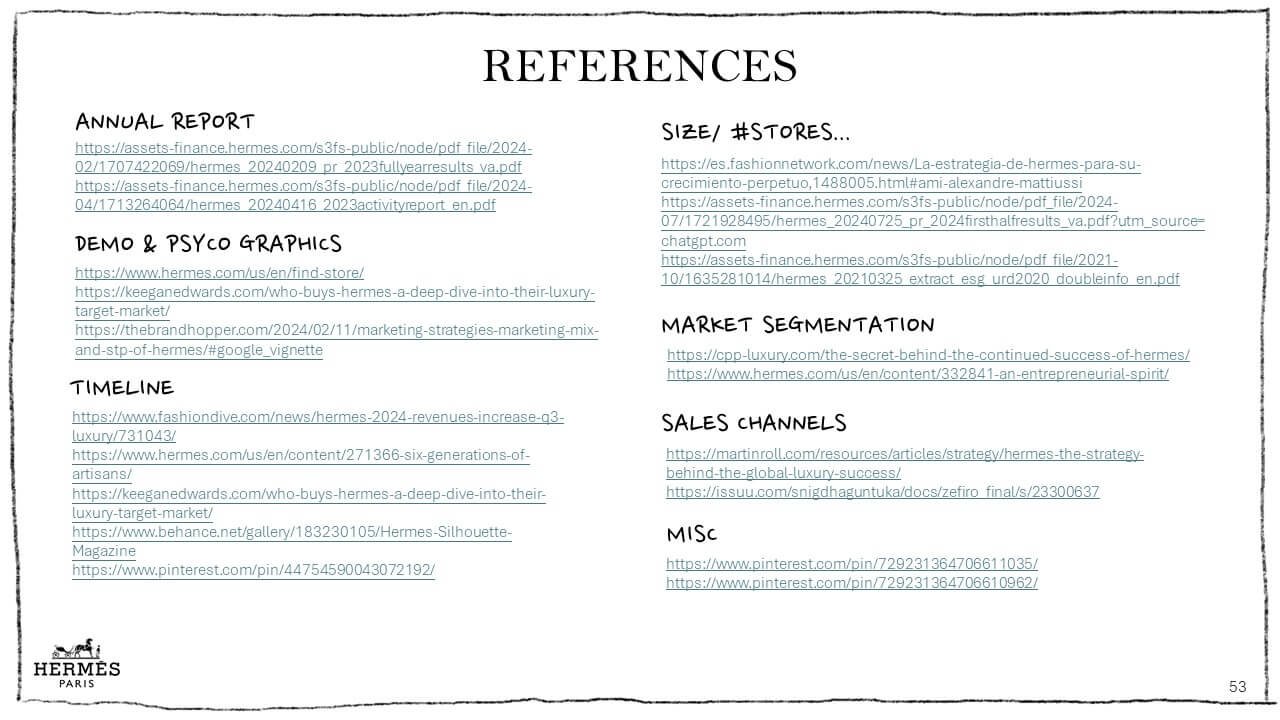 REFERENCES
ANNUAL REPORT
https://assets-finance.hermes.com/s3fs-public/node/pdf_file/2024-
02/1707422069/hermes_20240209_pr_2023fullyearresults_va.pdf
https://assets-finance.hermes.com/s3fs-public/node/pdf_file/2024-
04/1713264064/hermes_20240416_2023activityreport_en.pdf
DEMO & PSYCO GRAPHICS
https://www.hermes.com/us/en/find-store/
https://keeganedwards.com/who-buys-hermes-a-deep-dive-into-their-luxury-
target-market/
https://thebrandhopper.com/2024/02/11/marketing-strategies-marketing-mix-
and-stp-of-hermes/#google_vignette
TIMELINE
https://www.fashiondive.com/news/hermes-2024-revenues-increase-q3-
luxury/731043/
https://www.hermes.com/us/en/content/271366-six-generations-of-
artisans/
https://keeganedwards.com/who-buys-hermes-a-deep-dive-into-their-
luxury-target-market/
https://www.behance.net/gallery/183230105/Hermes-Silhouette-
Magazine
https://www.pinterest.com/pin/44754590043072192/
SIZE/ #STORES...
https://es.fashionnetwork.com/news/La-estrategia-de-hermes-para-su-
crecimiento-perpetuo,1488005.html#ami-alexandre-mattiussi
https://assets-finance.hermes.com/s3fs-public/node/pdf_file/2024-
07/1721928495/hermes_20240725_pr_2024firsthalfresults_va.pdf?utm_source=
chatgpt.com
https://assets-finance.hermes.com/s3fs-public/node/pdf_file/2021-
10/1635281014/hermes_20210325_extract_esg_urd2020_doubleinfo_en.pdf
MARKET SEGMENTATION
https://cpp-luxury.com/the-secret-behind-the-continued-success-of-hermes/
https://www.hermes.com/us/en/content/332841-an-entrepreneurial-spirit/
SALES CHANNELS
https://martinroll.com/resources/articles/strategy/hermes-the-strategy-
behind-the-global-luxury-success/
https://issuu.com/snigdhaguntuka/docs/zefiro_final/s/23300637
MISC
https://www.pinterest.com/pin/729231364706611035/
https://www.pinterest.com/pin/729231364706610962/
HERMÈS
PARIS
53